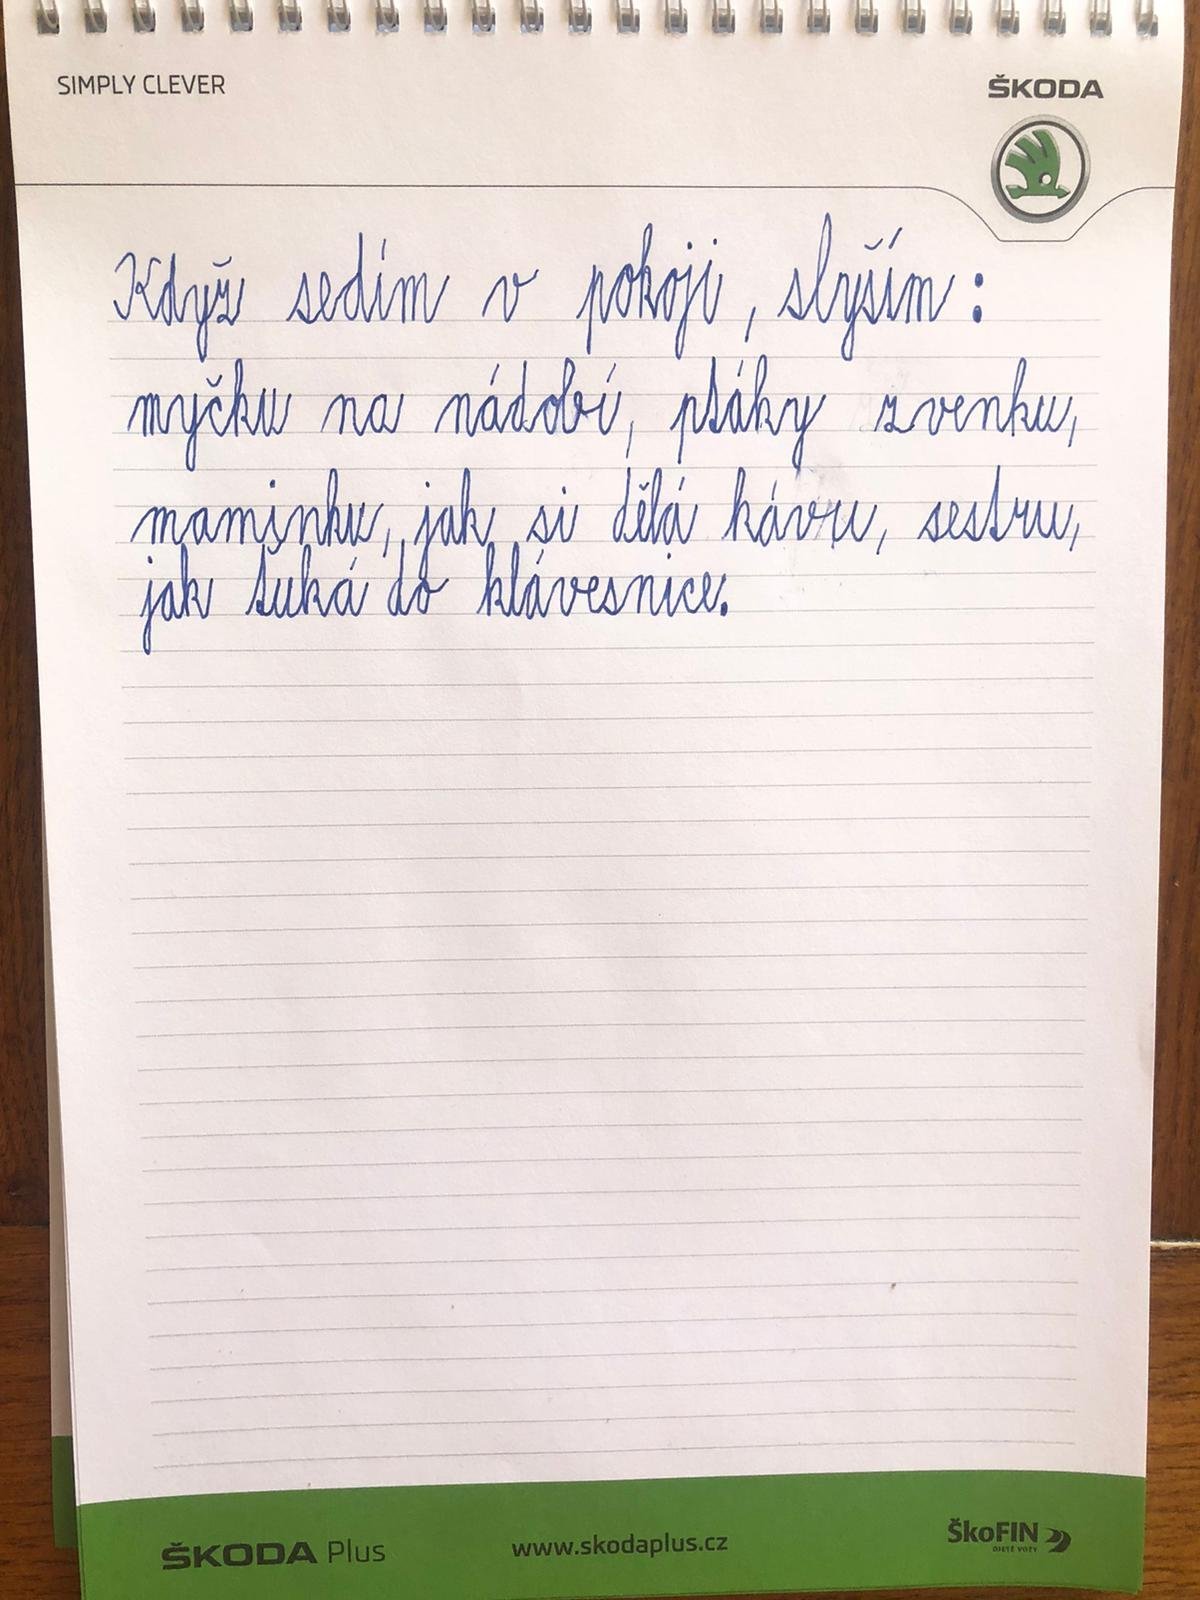 SIMPLY CLEVER
ŠKODA
Když sedím v pokoji, slyším:
myčku na nádobí, ptáky zvenku,
maminku, jak si dělá kávu, sestru,
jak ťuká do klávesnice.
ŠKODA Plus
www.skodaplus.cz
ŠkoFIN
OJETÉ VOZY